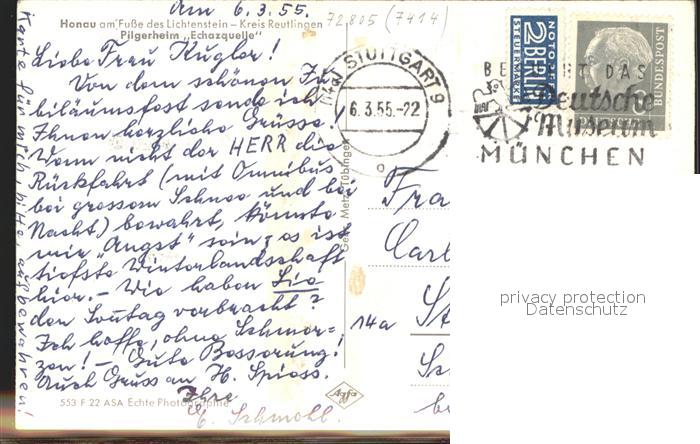 Am 6.3.55.
Honau am Fuße des Lichtenstein – Kreis Reutlingen
Pilgerheim „Echazquelle"
72805 (7414)
Liebe Frau Kugler!
Von dem schönen Ju-
biläumsfest sende ich
Ihnen herzliche Grüsse!
Wenn nicht der HERR die
Rückfahrt (mit Omnibus
bei grossem Schnee und bei
Nacht) bewahrt, könnte
mir „Angst" sein; es ist
tiefste Winterlandschaft
hier. – Wie haben Sie
den Sonntag verbracht?
Ich hoffe, ohne Schmer-
zen! – Gute Besserung!
Auch Gruss an H. Spiess.
Ihre
E. Schmohl.
Karte für mich, bitte, aufbewahren!
553 F 22 ASA Echte Photographie
Agfa
Gebr. Metz, Tübingen
STUTTGART 9
6.3.55.-22
NOTOPFER
2 BERLIN
STEUERMARKE
DEUTSCHE BUNDESPOST
BESUCHT DAS
Deutsche
Museum
MÜNCHEN
Fra
14a
privacy protection
Datenschutz